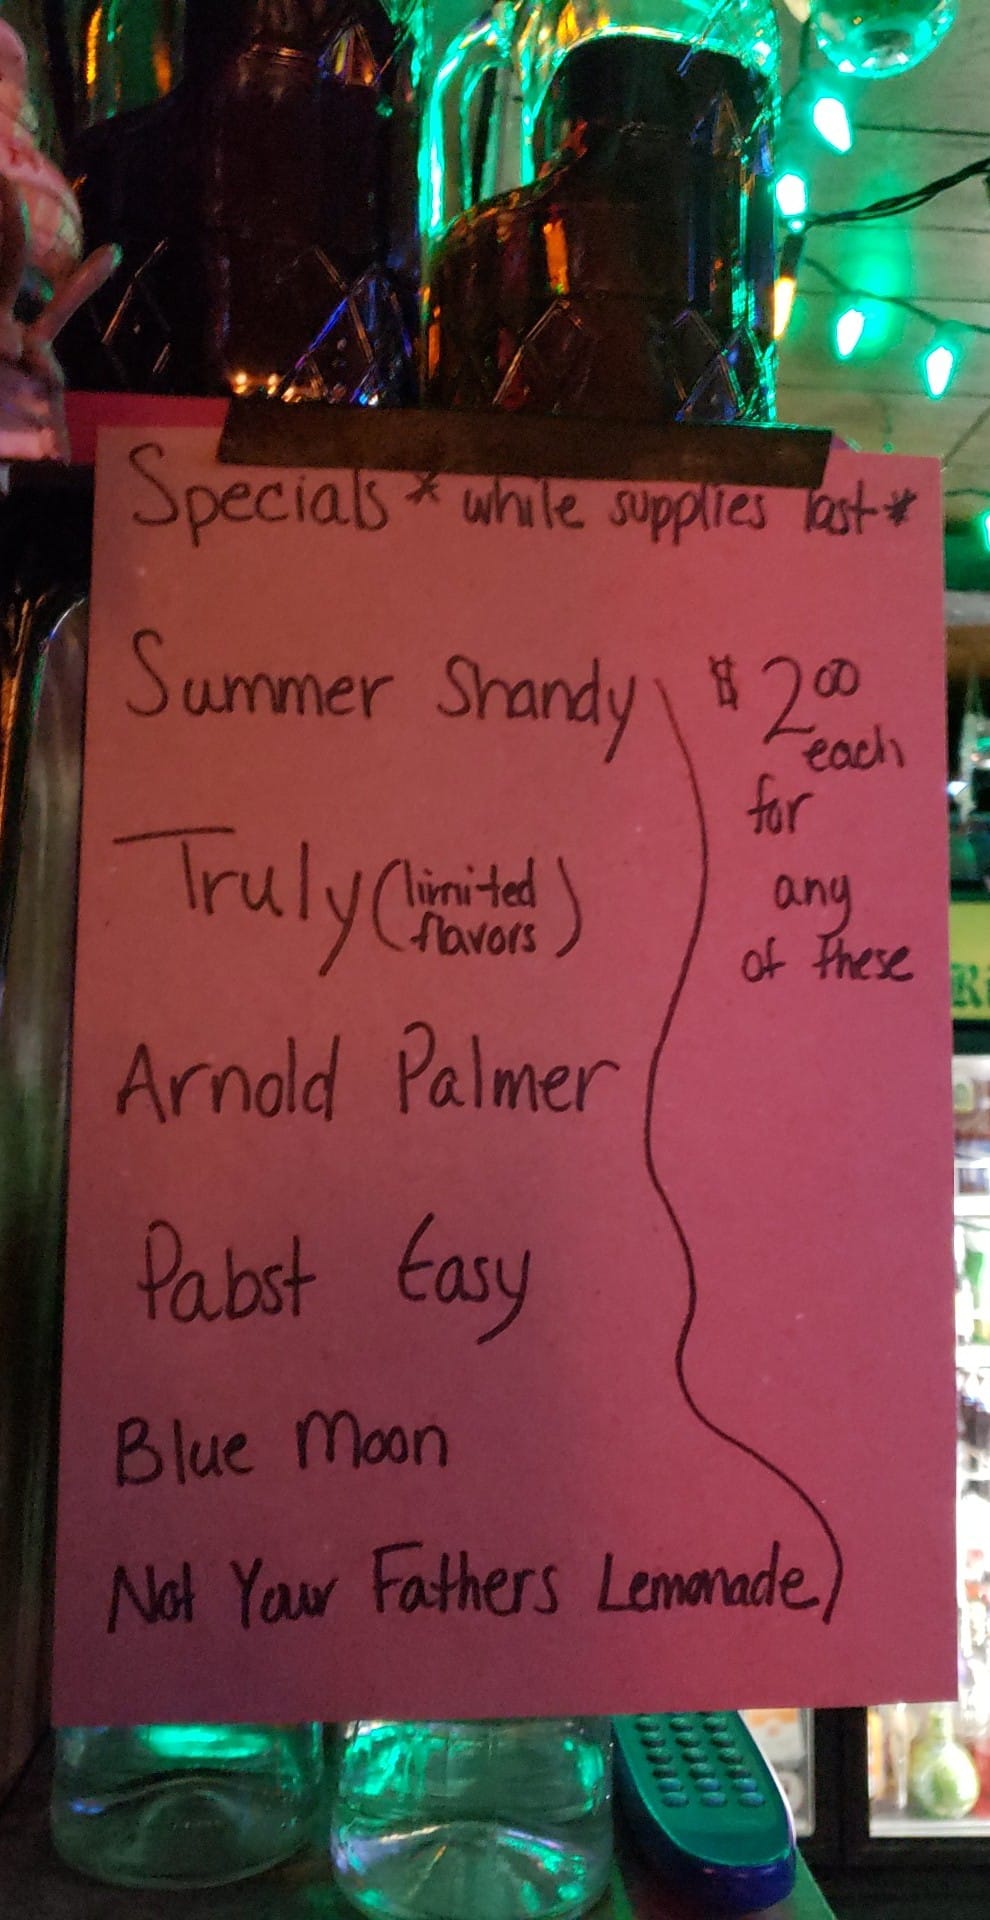 Specials * while supplies last *
Summer Shandy
$2.00
each
for
any
of these
Truly (limited
flavors)
Arnold Palmer
Pabst Easy
Blue Moon
Not Your Fathers Lemonade